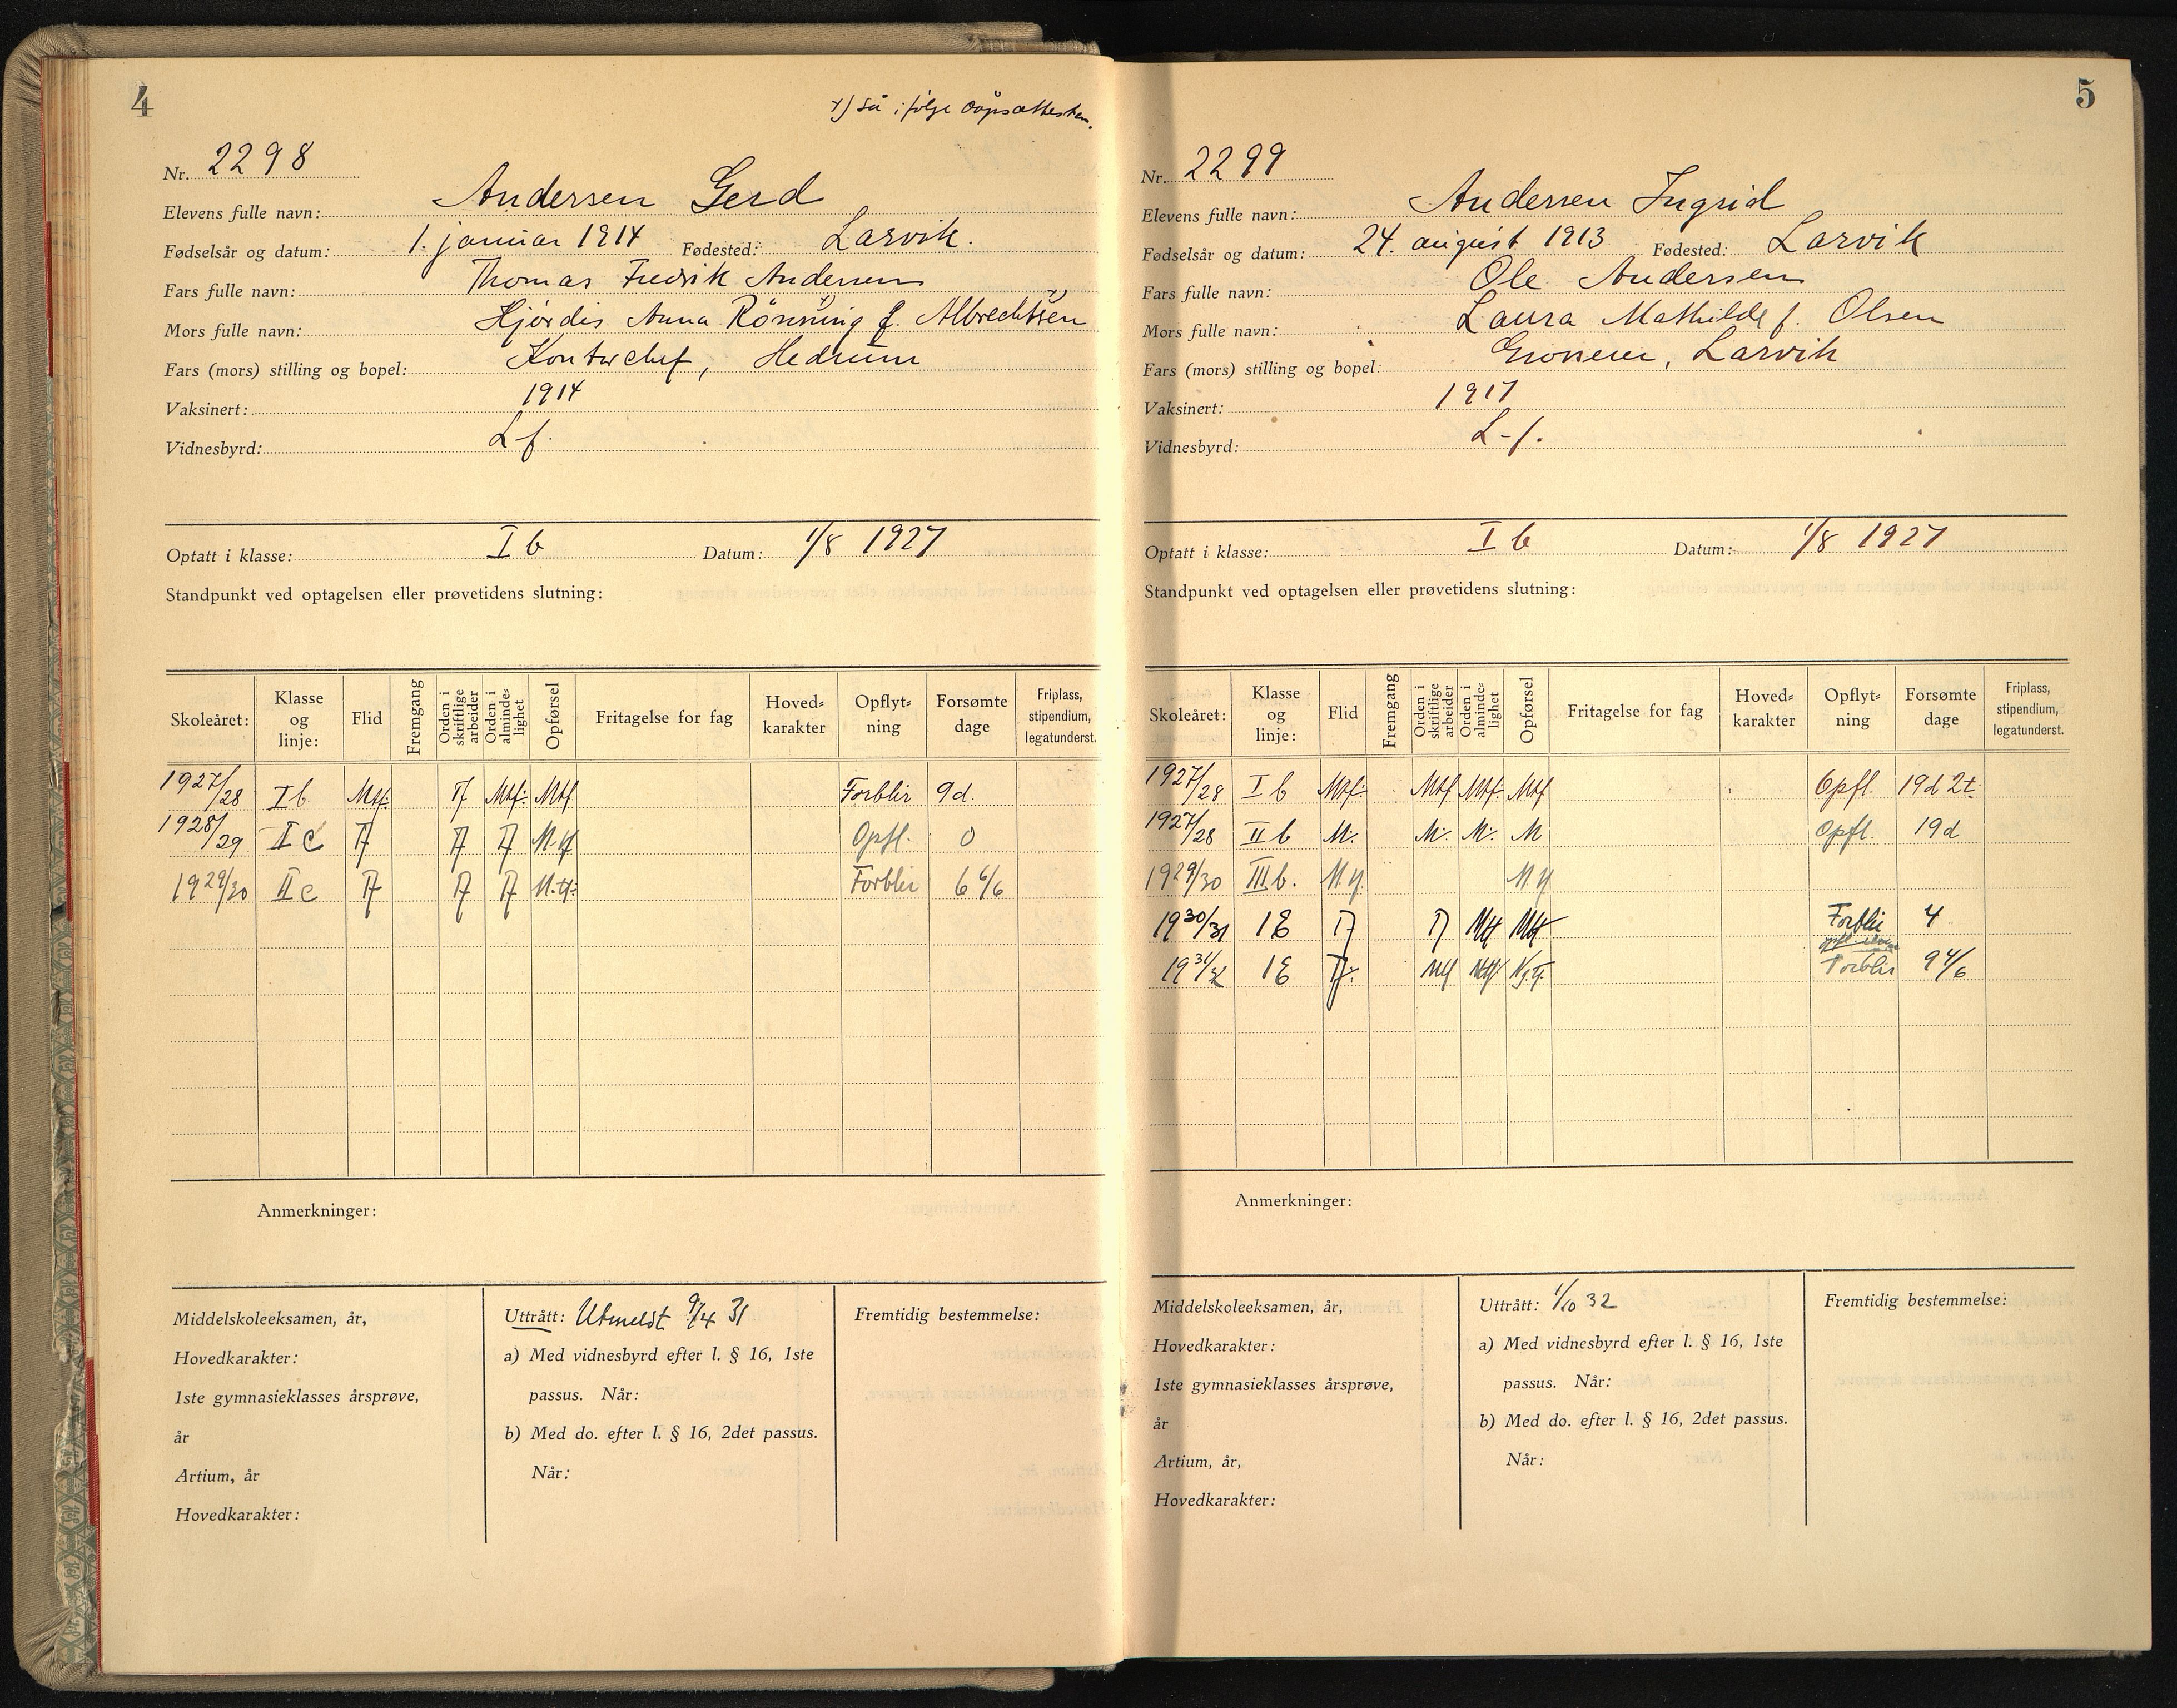 4
×) Så ifølge dåpsattesten.
Nr. 2298
Elevens fulle navn: Andersen Gerd
Fødselsår og datum: 1. januar 1914 Fødested: Larvik.
Fars fulle navn: Thomas Fredrik Andersen
Mors fulle navn: Hjördis Anna Rönning f. Albrechtsen
Fars (mors) stilling og bopel: Kontorchef, Hedrum
Vaksinert: 1914
Vidnesbyrd: L-f.
Optatt i klasse: I b Datum: 1/8 1927
Standpunkt ved optagelsen eller prøvetidens slutning:
Skoleåret: Klasse og linje: Flid Fremgang Orden i skriftlige arbeider Orden i almindelighet Opførsel Fritagelse for fag Hoved-karakter Opflyt-ning Forsømte dage Friplass, stipendium, legatunderst.
1927/28 I b Mtf. Tf Mtf. Mtf. Forblir 9d.
1928/29 II c Tf Tf Tf M.tf Opfl. 0
1929/30 II c Tf Tf Tf M.tf. Forblir 6 6/6
Anmerkninger:
Middelskoleeksamen, år,
Hovedkarakter:
1ste gymnasieklasses årsprøve,
år
Artium, år
Hovedkarakter:
Uttrått: Utmeldt 9/4 31
a) Med vidnesbyrd efter l. § 16, 1ste
passus. Når:
b) Med do. efter l. § 16, 2det passus.
Når:
Fremtidig bestemmelse:
5
Nr. 2299
Elevens fulle navn: Andersen Ingrid
Fødselsår og datum: 24. august 1913 Fødested: Larvik
Fars fulle navn: Ole Andersen
Mors fulle navn: Laura Mathilde f. Olsen
Fars (mors) stilling og bopel: Grosserer, Larvik
Vaksinert: 1917
Vidnesbyrd: L-f.
Optatt i klasse: I b Datum: 1/8 1927
Standpunkt ved optagelsen eller prøvetidens slutning:
Skoleåret: Klasse og linje: Flid Fremgang Orden i skriftlige arbeider Orden i almindelighet Opførsel Fritagelse for fag Hoved-karakter Opflyt-ning Forsømte dage Friplass, stipendium, legatunderst.
1927/28 I b Mtf. Mtf Mtf. Mtf Opfl. 19d 2t.
1927/28 II b M. M. M. M Opfl. 19d
1929/30 III b. M.tf. M.tf
1930/31 1E Tf Tf Mtf Mtf Forblir 4
1931/32 1E Tf. Mtf Mtf Ng.tf. Forblir 9 4/6
Anmerkninger:
Middelskoleeksamen, år,
Hovedkarakter:
1ste gymnasieklasses årsprøve,
år
Artium, år,
Hovedkarakter:
Uttrått: 1/10 32
a) Med vidnesbyrd efter l. § 16, 1ste
passus. Når:
b) Med do. efter l. § 16, 2det passus.
Når:
Fremtidig bestemmelse: